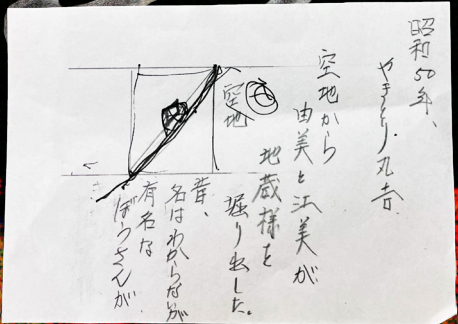 昭和50年、
やきとり丸吉
空地から
由美と江美が
地蔵様を
堀り出した。
空地
昔、
名はわからないが
有名な
ぼうさんが